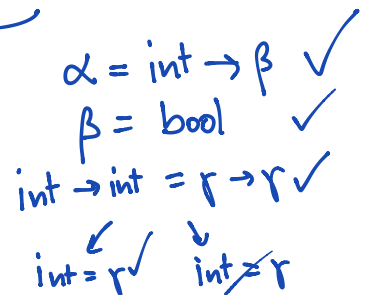 α = int → β ✓
β = bool ✓
int → int = γ → γ ✓
int = γ ✓ int = γ